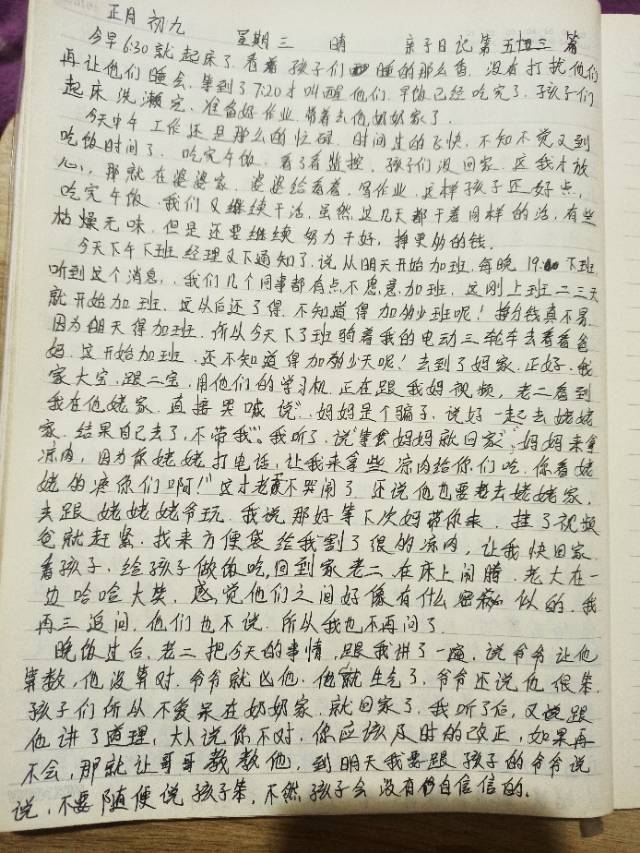 正月 初九 星期三 晴 亲子日记第五十三篇
今早6:30就起床了.看着孩子们睡的那么香.没有打扰他们
再让他们睡会.等到了7:20才叫醒他们.早饭已经吃完了.孩子们
起床洗漱完.准备好作业.带着去他奶奶家了.
今天中午工作还是那么的忙碌.时间过的飞快.不知不觉又到
吃饭时间了.吃完午饭.看了看监控.孩子们没回家.这我才放
心.那就在婆婆家.婆婆给看着.写作业.这样孩子还好点,
吃完午饭.我们又继续干活,虽然这几天都干着同样的活,有些
枯燥无味.但是还要继续努力干好,挣更多的钱.
今天下午下班经理又下通知了.说从明天开始加班.每晚19:00下班
听到这个消息,.我们几个同事都有点不愿意加班.这刚上班二三天
就开始加班.这以后还了得.不知道得加多少班呢!挣钱真不易.
因为明天得加班.所以今天下了班骑着我的电动三轮车去看看爸
妈.这开始加班.还不知道得加多少天呢!去到了妈家.正好.我
家大宝.跟二宝.用他们的学习机.正在跟我妈视频,老二看到
我在他姥家.直接哭喊说"妈妈是个骗子.说好一起去姥姥
家.结果自己去了,不带我".我听了.说"妈妈就回家".妈妈来拿
凉肉,因为你姥姥打电话,让我来拿些凉肉给你们吃.你看姥
姥的疼你们啊!"这才老二不哭闹了.还说他也要去姥姥家.
去跟姥姥姥爷玩.我说那好等下次妈带你来.挂了视频
爸就赶紧.找来方便袋给我割了很多凉肉,让我快回家
看孩子.给孩子做饭吃,回到家老二在床上闹腾.老大在一
边哈哈大笑,感觉他们之间好像有什么密秘似的.我
再三追问,他们也不说.所以我也不再问了.
晚饭过后.老二把今天的事情.跟我讲了一遍,说爷爷让他
算数,他没算对.爷爷就凶他.他就生气了.爷爷还说他很笨.
孩子们所以不爱呆在奶奶家.就回家了.我听了后,又跟
他讲了道理,大人说你不对.你应该及时的改正,如果再
不会,那就让哥哥教教他,到明天我要跟孩子的爷爷说
说,不要随便说孩子笨,不然孩子会没有自信的.